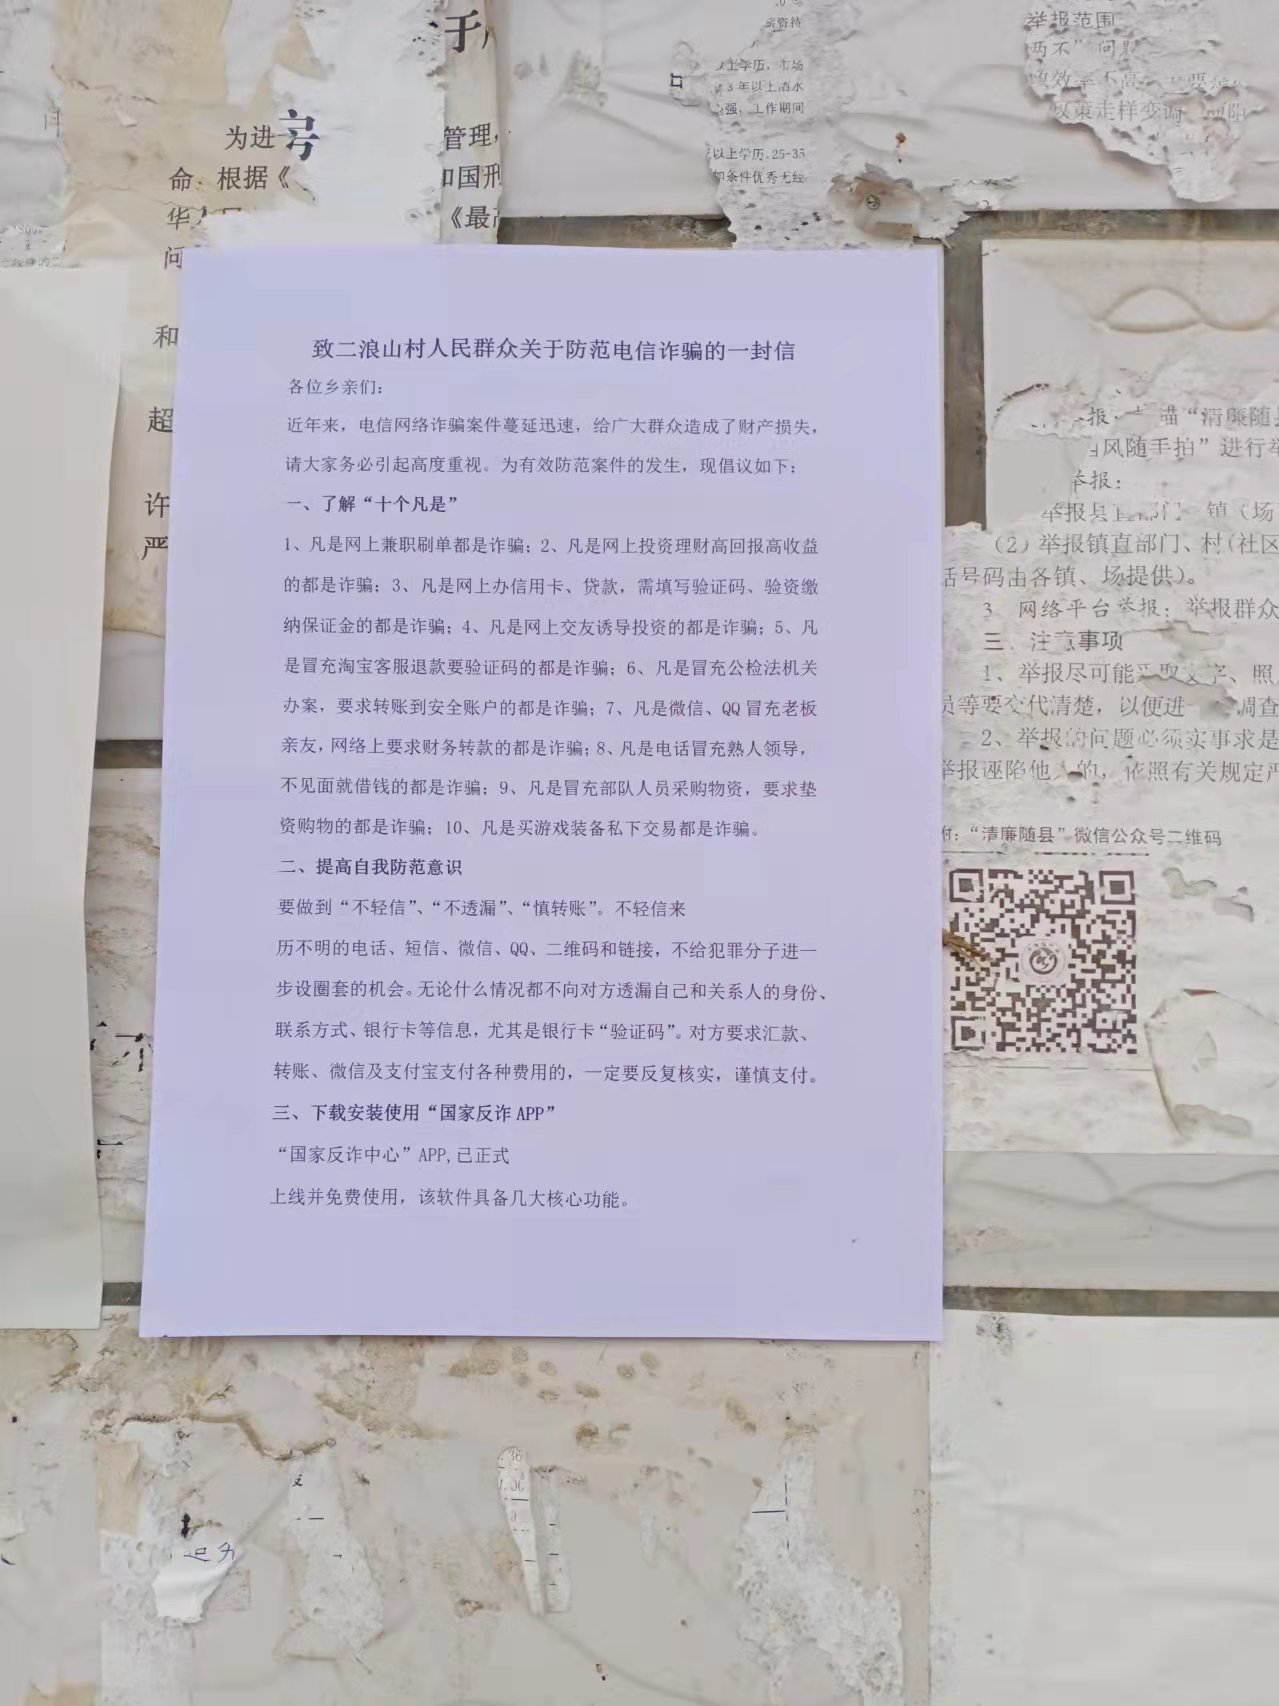 为进
管理，
命 根据《
和国刑
《最高
问
和
超
许
严
以上学历，市场
3年以上酒水
强，工作期间
以上学历，25-35
条件优秀
举报范围
两不”问
政策走样变调
致二浪山村人民群众关于防范电信诈骗的一封信
各位乡亲们：
近年来，电信网络诈骗案件蔓延迅速，给广大群众造成了财产损失，
请大家务必引起高度重视。为有效防范案件的发生，现倡议如下：
一、了解“十个凡是”
1、凡是网上兼职刷单都是诈骗；2、凡是网上投资理财高回报高收益
的都是诈骗；3、凡是网上办信用卡、贷款，需填写验证码、验资缴
纳保证金的都是诈骗；4、凡是网上交友诱导投资的都是诈骗；5、凡
是冒充淘宝客服退款要验证码的都是诈骗；6、凡是冒充公检法机关
办案，要求转账到安全账户的都是诈骗；7、凡是微信、QQ冒充老板
亲友，网络上要求财务转款的都是诈骗；8、凡是电话冒充熟人领导，
不见面就借钱的都是诈骗；9、凡是冒充部队人员采购物资，要求垫
资购物的都是诈骗；10、凡是买游戏装备私下交易都是诈骗。
二、提高自我防范意识
要做到“不轻信”、“不透漏”、“慎转账”。不轻信来
历不明的电话、短信、微信、QQ、二维码和链接，不给犯罪分子进一
步设圈套的机会。无论什么情况都不向对方透漏自己和关系人的身份、
联系方式、银行卡等信息，尤其是银行卡“验证码”。对方要求汇款、
转账、微信及支付宝支付各种费用的，一定要反复核实，谨慎支付。
三、下载安装使用“国家反诈APP”
“国家反诈中心”APP,已正式
上线并免费使用，该软件具备几大核心功能。
“清廉随
风随手拍”进行举
举报：
举报县直部门 镇（场
（2）举报镇直部门、村（社区
话号码由各镇、场提供）。
3 网络平台举报：举报群众
三、注意事项
1、举报尽可能 照
员等要交代清楚，以便进 调查
2、举报的问题必须实事求是
举报诬陷他人的，依照有关规定严
附：“清廉随县”微信公众号二维码